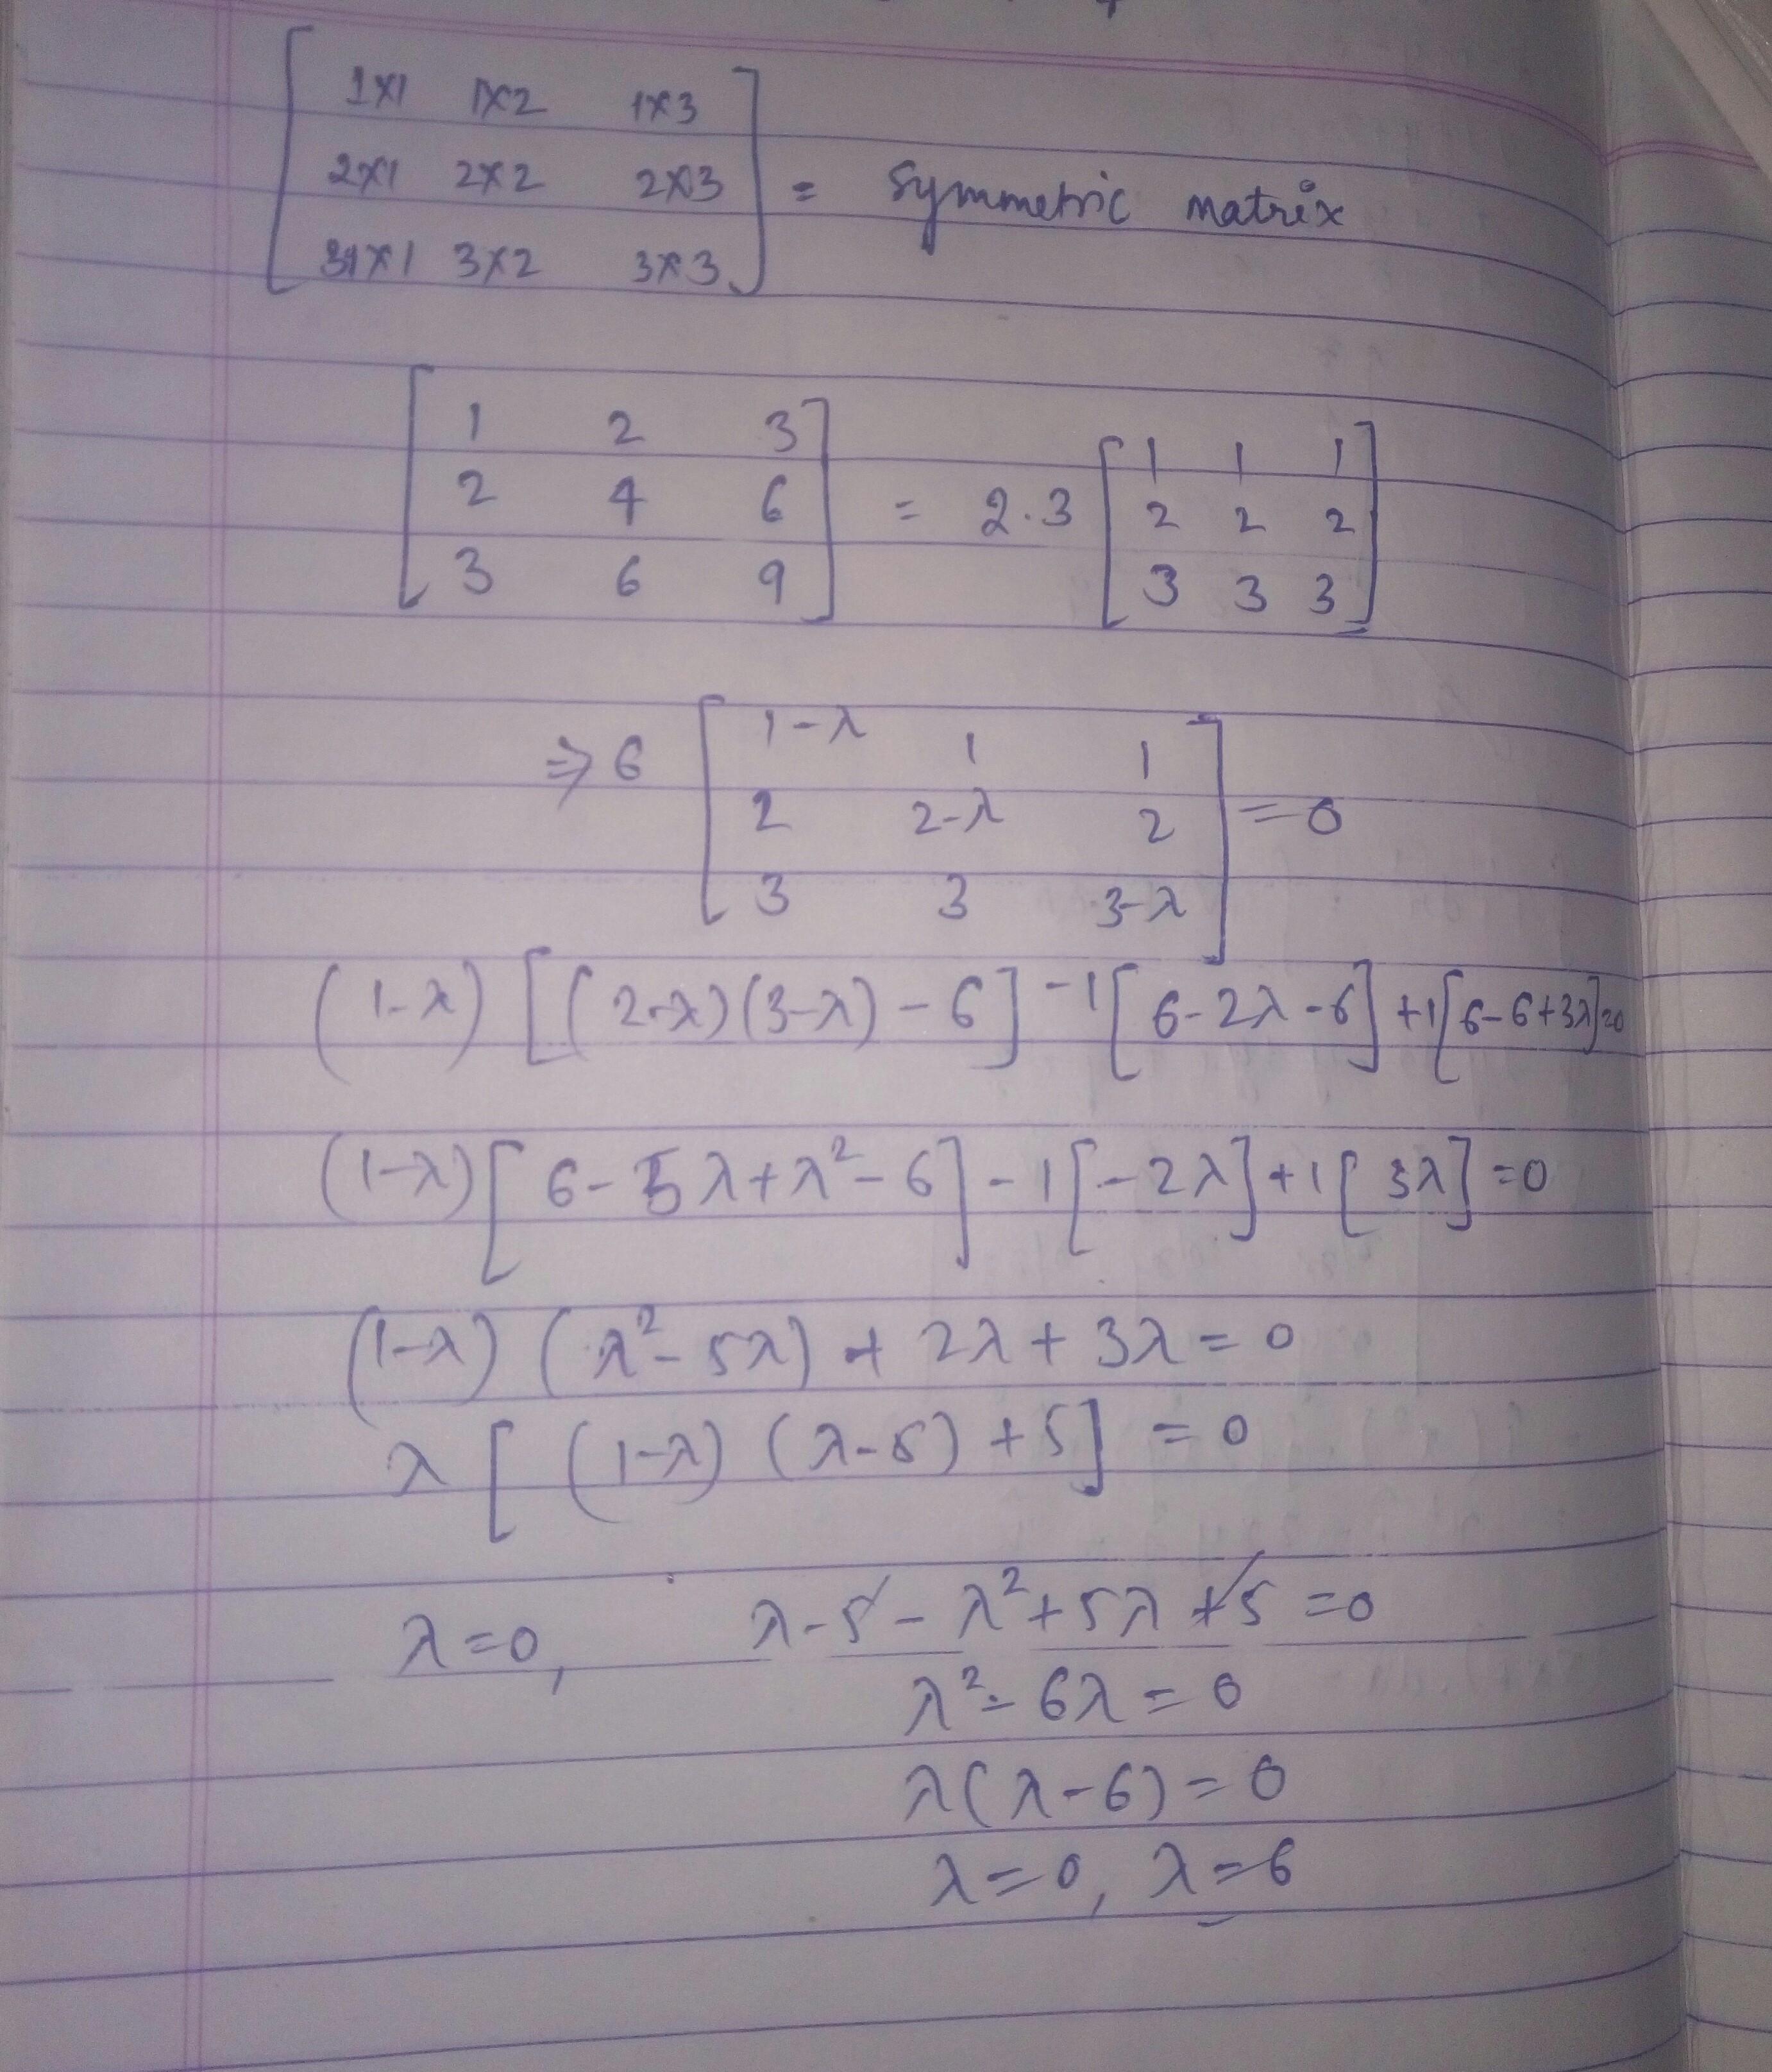 1×1 1×2 1×3
2×1 2×2 2×3 = Symmetric matrix
3×1 3×2 3×3
1 2 3 1 1 1
2 4 6 = 2.3 2 2 2
3 6 9 3 3 3
⇒ 6 1-λ 1 1
2 2-λ 2 = 0
3 3 3-λ
(1-λ) [(2-λ)(3-λ) - 6] -1[6-2λ-6] +1[6-6+3λ]=0
(1-λ)[6-5λ+λ²-6] -1[-2λ]+1[3λ]=0
(1-λ) (λ²-5λ) + 2λ + 3λ = 0
λ [(1-λ) (λ-5) +5] = 0
λ=0, λ-5-λ²+5λ+5=0
λ²-6λ=0
λ(λ-6)=0
λ=0, λ=6